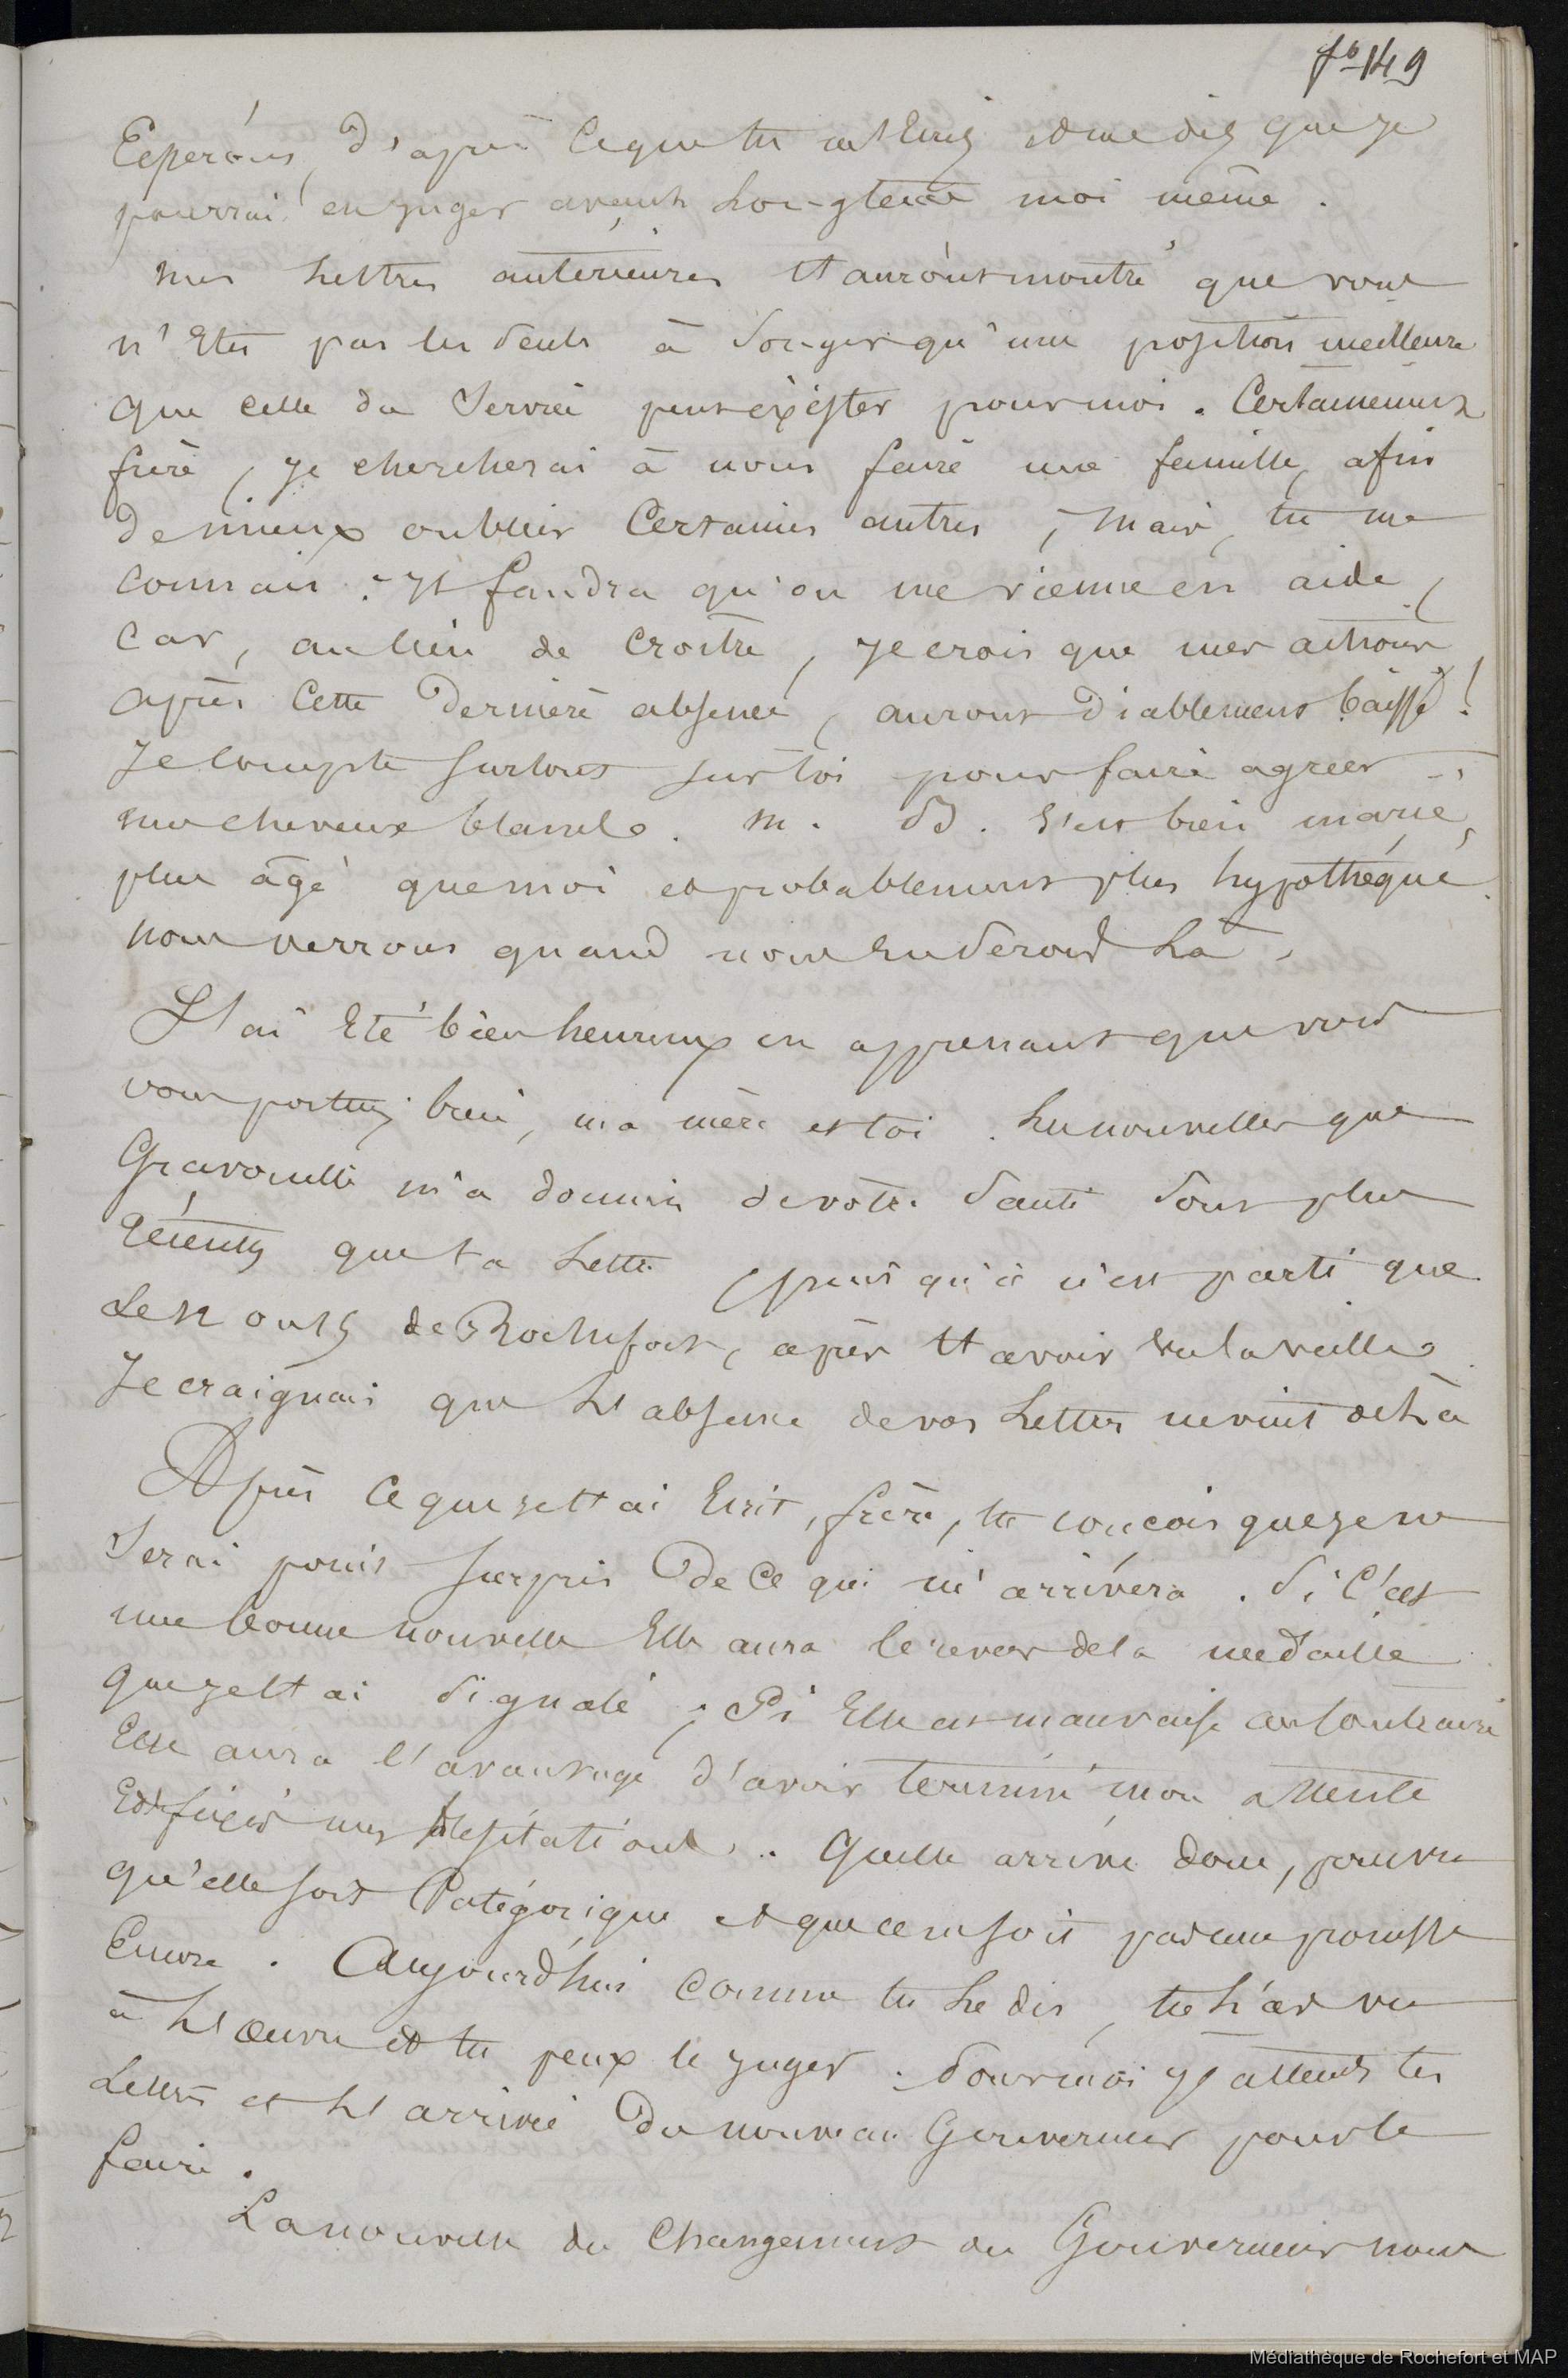 fo 149
Espérons, d'après ceque tu m'Ecris et me dis que je
pourrai en juger avant Longtems moi même.
mes Lettres antérieures t'aurons montré que vous
n'Etes pas les Seuls à Songer qu'une position meilleure
que celle du Service peut éxister pour moi. Certainement
frère, je chercherai à nous faire une famille, afin
de mieux oublier Certaines autres, mais, tu me
connais : Il faudra qu'on me vienne en aide,
Car, au lieu de Croître, je crois que mes actions
après Cette Dernière absence, auront Diablement baissé !
Je compte surtout sur toi pour faire agréer
mes cheveux blancs. M. D. S'est bien marié,
plus âgé que moi et probablement plus hypothéqué
nous verrons quand nous En Serons Là.
J'ai Eté bien heureux en apprenant que vous
vous portiez bien, ma mère et toi. Les nouvelles que
m'a données de votre Santé Sont plus
récentes que ta Lettre puisqu'il n'est parti que
Le 12 août de Rochefort, après t'avoir vu la veille.
Je craignais que L'absence de vos Lettres ne vint de Là
Après Ce que je t'ai Ecrit, frère, tu conçois que je ne
Serai point surpris De Ce qui m'arrivera. Si C'est
une bonne nouvelle Elle aura le revers de la médaille
que je t'ai Signalé ; Si Elle est mauvaise au Contraire
Elle aura l'avantage d'avoir terminé mon attente
Et fixé mes hésitations. Quelle arrive donc, pourvu
qu'elle soit Catégorique et que ce ne soit pas une promesse
Encore. Aujourd'hui comme tu Le dis, tu L'as vu
à L'œuvre et tu peux le juger. Pour moi j'attends tes
Lettres et L'arrivée Du nouveau Gouverneur pour le
faire.
La nouvelle du Changement du Gouverneur nous
Médiathèque de Rochefort et MAP